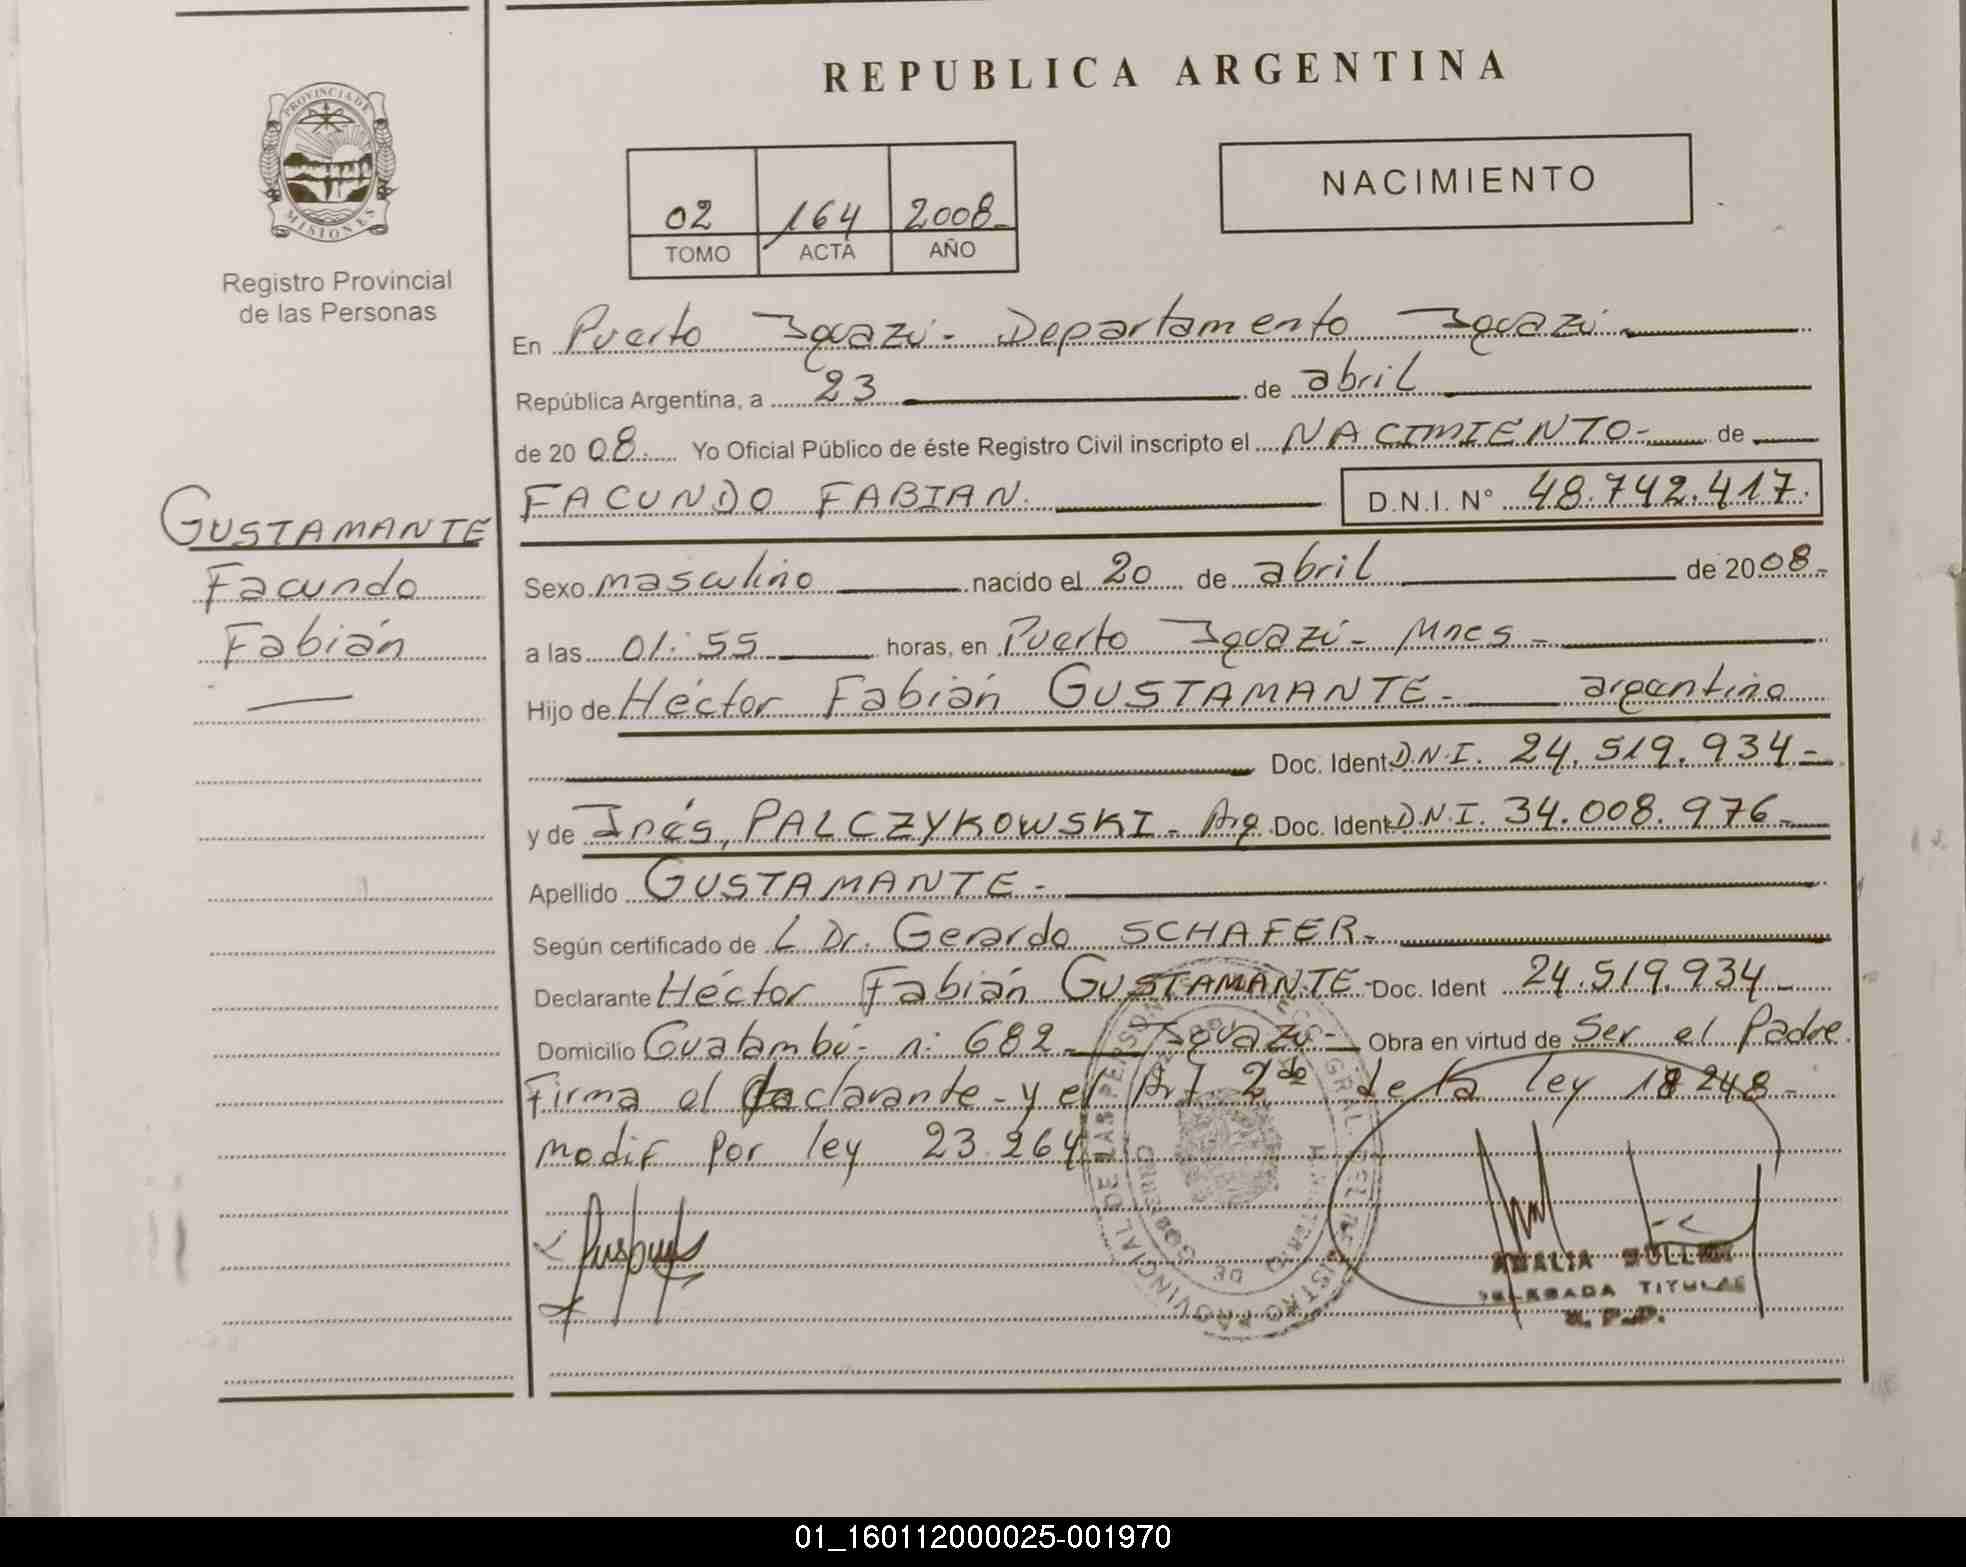 REPUBLICA ARGENTINA
PROVINCIA DE
MISIONES
Registro Provincial
de las Personas
GUSTAMANTE
Facundo
Fabián
02 164 2008-
TOMO ACTA AÑO
NACIMIENTO
En Puerto Iguazú- Departamento Iguazú-
República Argentina, a 23 de abril
de 2008. Yo Oficial Público de éste Registro Civil inscripto el NACIMIENTO- de
FACUNDO FABIAN. D.N.I. N° 48.742.417.
Sexo masculino nacido el 20 de abril de 2008-
a las 01:55 horas, en Puerto Iguazú- Mnes-
Hijo de Héctor Fabián GUSTAMANTE- argentino
Doc. Ident D.N.I. 24.519.934-
y de Inés, PALCZYKOWSKI- Arg Doc. Ident D.N.I. 34.008.976-
Apellido GUSTAMANTE-
Según certificado de L Dr. Gerardo SCHAFER-
Declarante Héctor Fabián GUSTAMANTE- Doc. Ident 24.519.934-
Domicilio Guatambú- n: 682- Iguazú- Obra en virtud de Ser el Padre.
Firma el declarante- y el Art 2do de la ley 18248-
modif por ley 23.264
DELEGADA TITULAR
R.P.P.
01_160112000025-001970